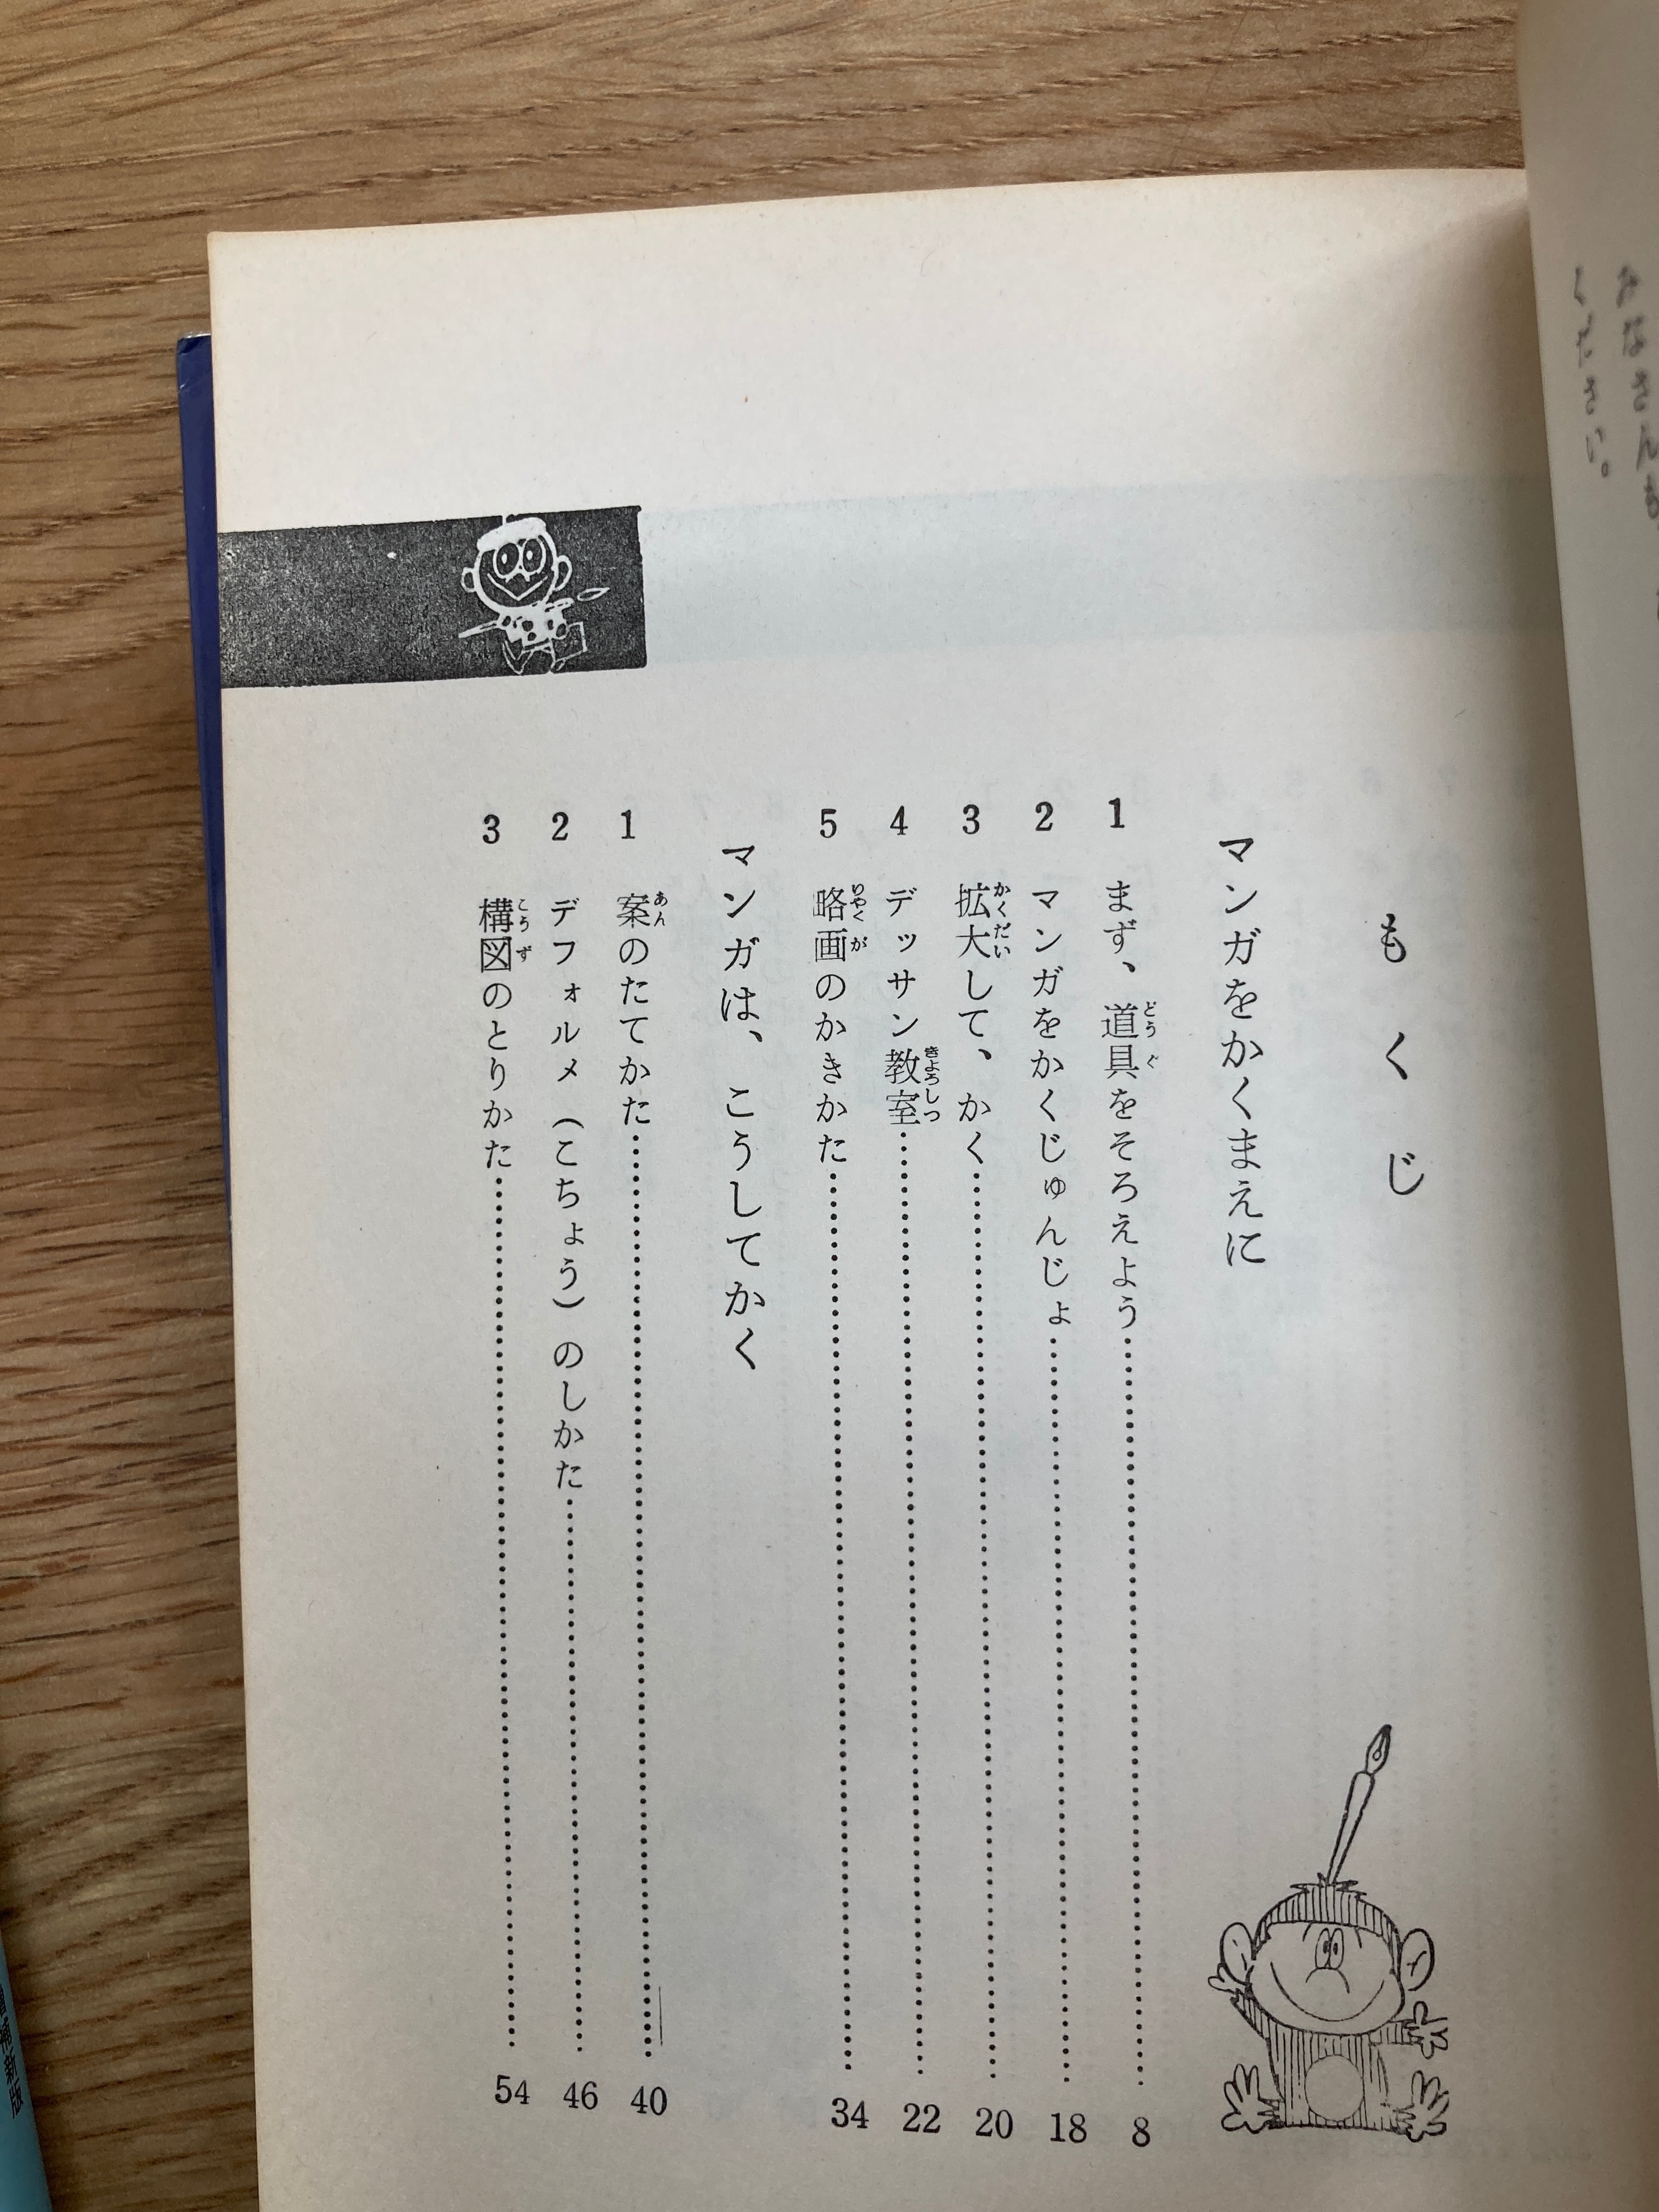 みなさんも
ください。
もくじ
マンガをかくまえに
1 まず、道具をそろえよう 8
2 マンガをかくじゅんじょ 18
3 拡大して、かく 20
4 デッサン教室 22
5 略画のかきかた 34
マンガは、こうしてかく
1 案のたてかた 40
2 デフォルメ(こちょう)のしかた 46
3 構図のとりかた 54
補新版